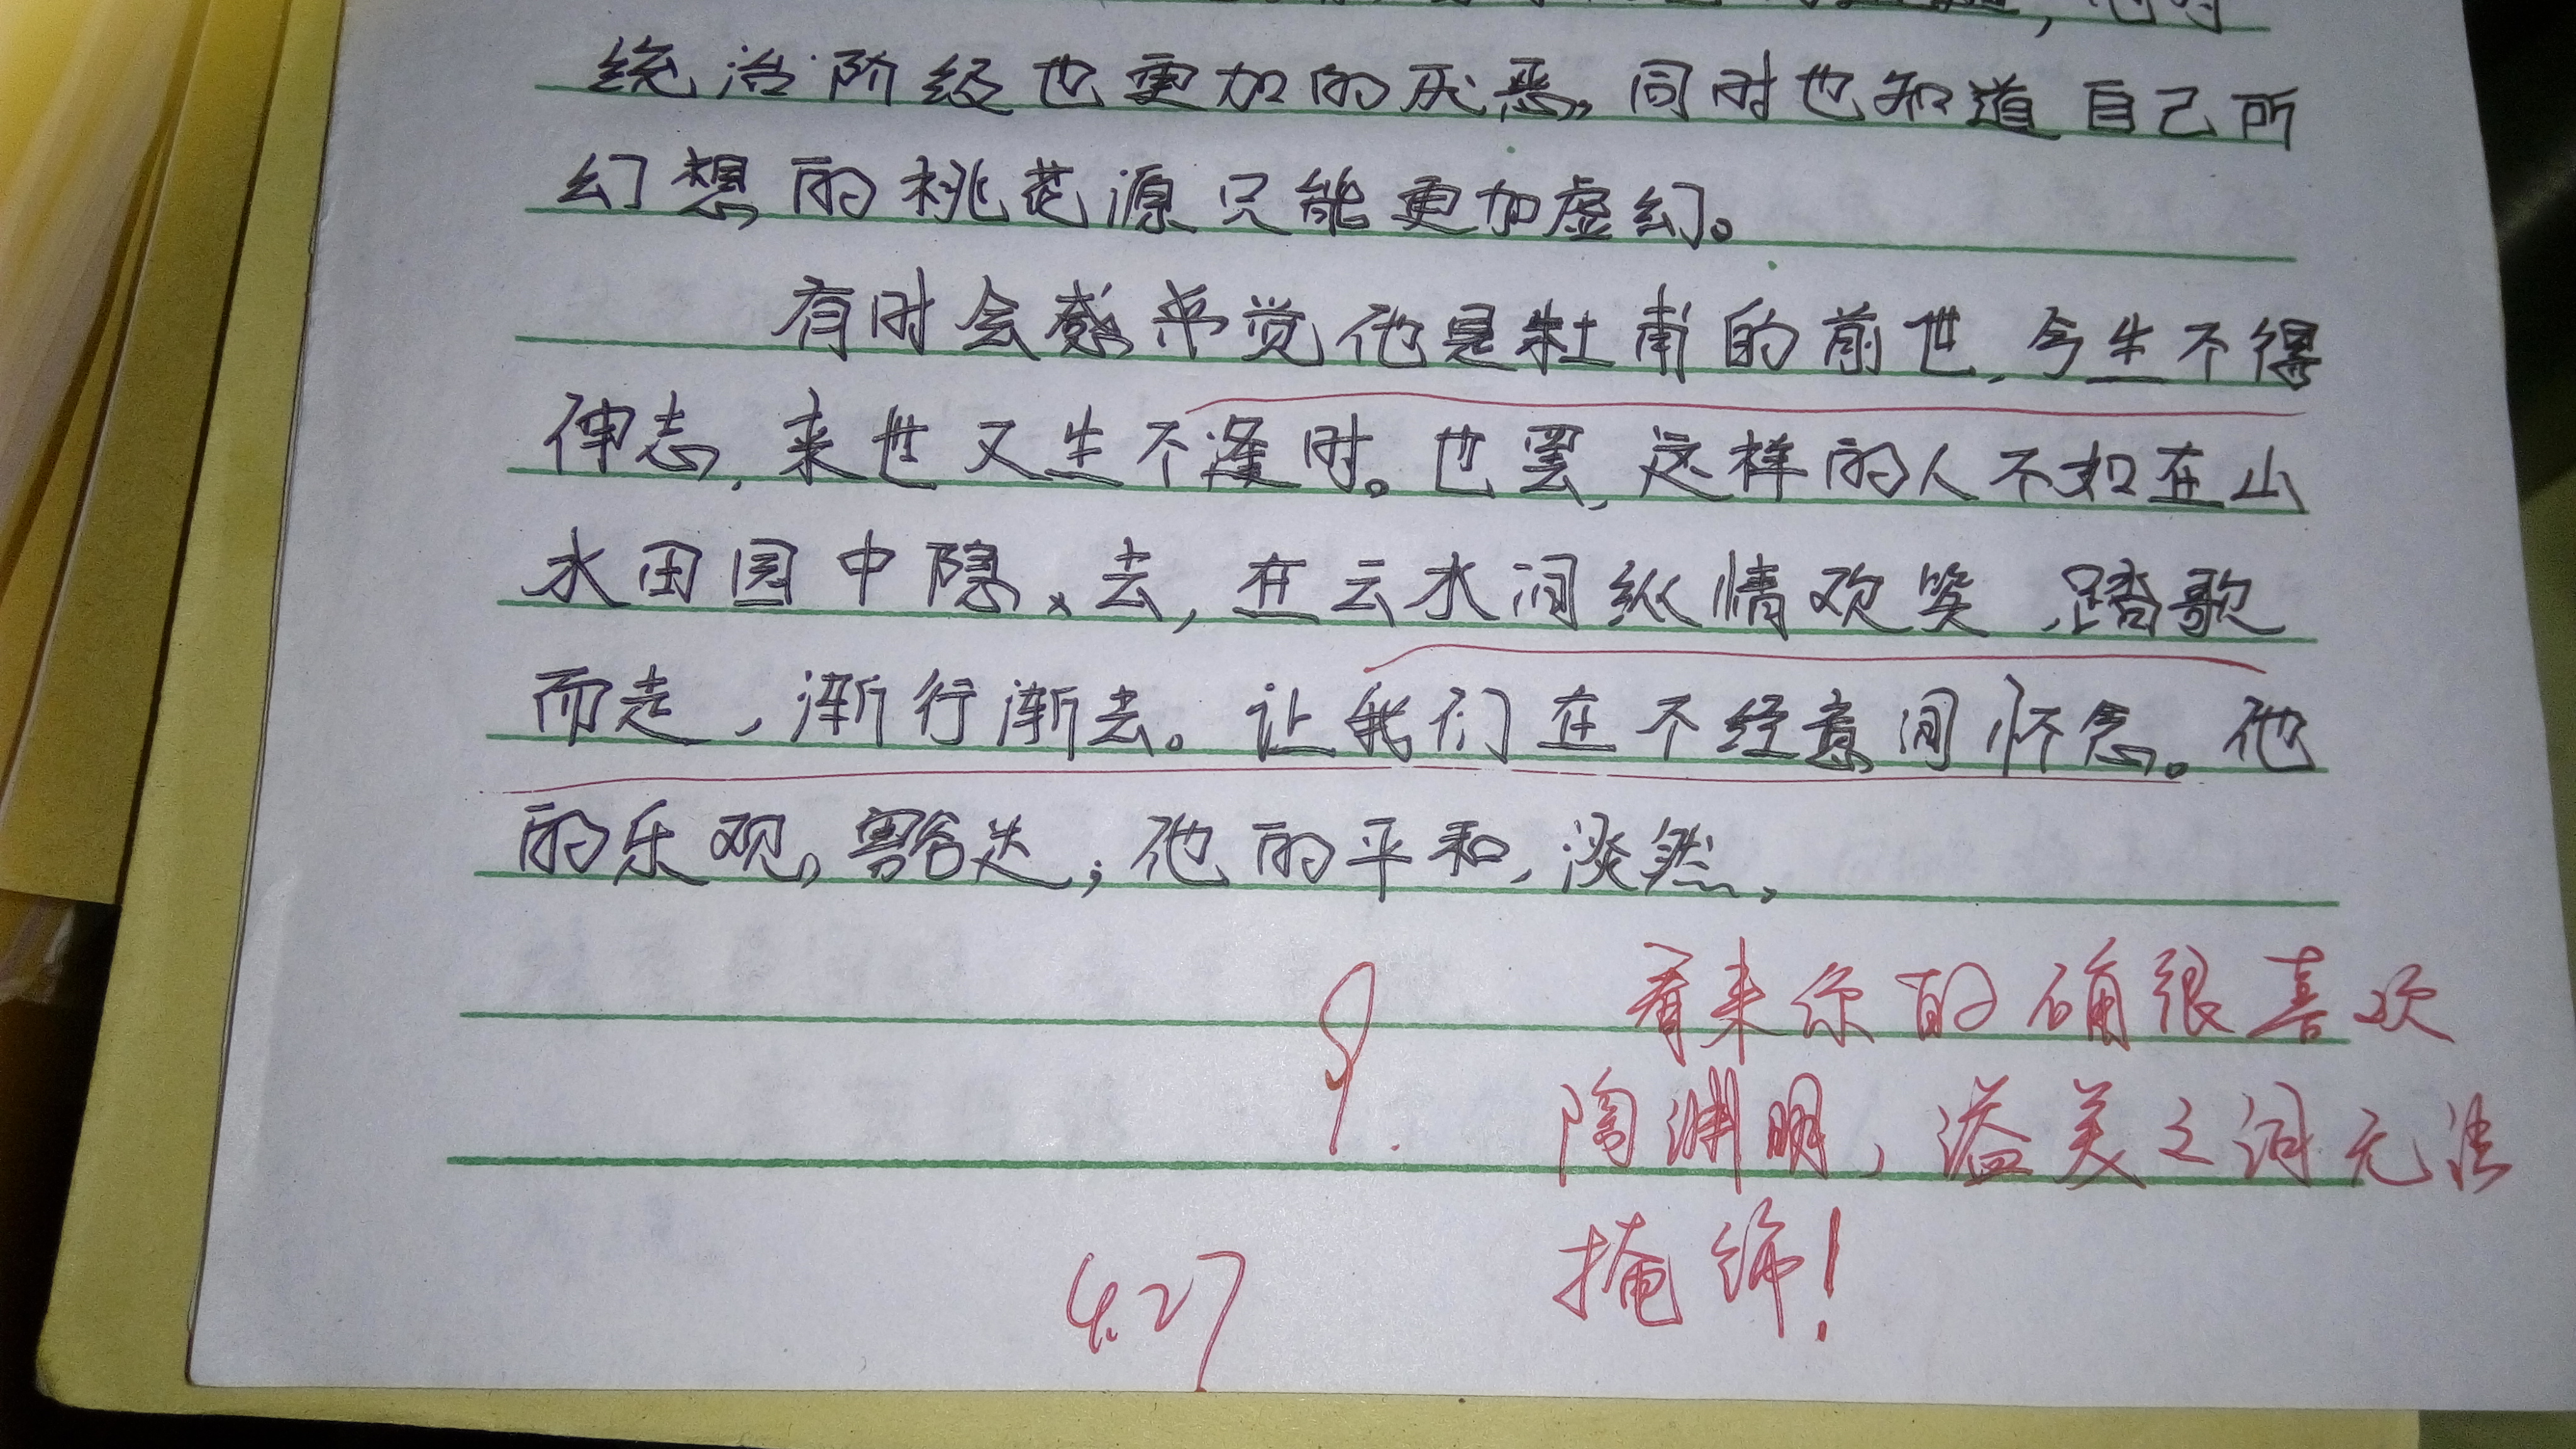 统治阶级也更加的厌恶,同时也知道自己所
幻想的桃花源只能更加虚幻。
有时会感觉他是杜甫的前世,今生不得
伸志,来世又生不逢时。也罢,这样的人不如在山
水田园中隐去,在云水间纵情欢笑,踏歌
而走,渐行渐去。让我们在不经意间怀念。他
的乐观,豁达;他的平和,淡然,
9.
看来你的确很喜欢
陶渊明,溢美之词无法
掩饰!
4.27